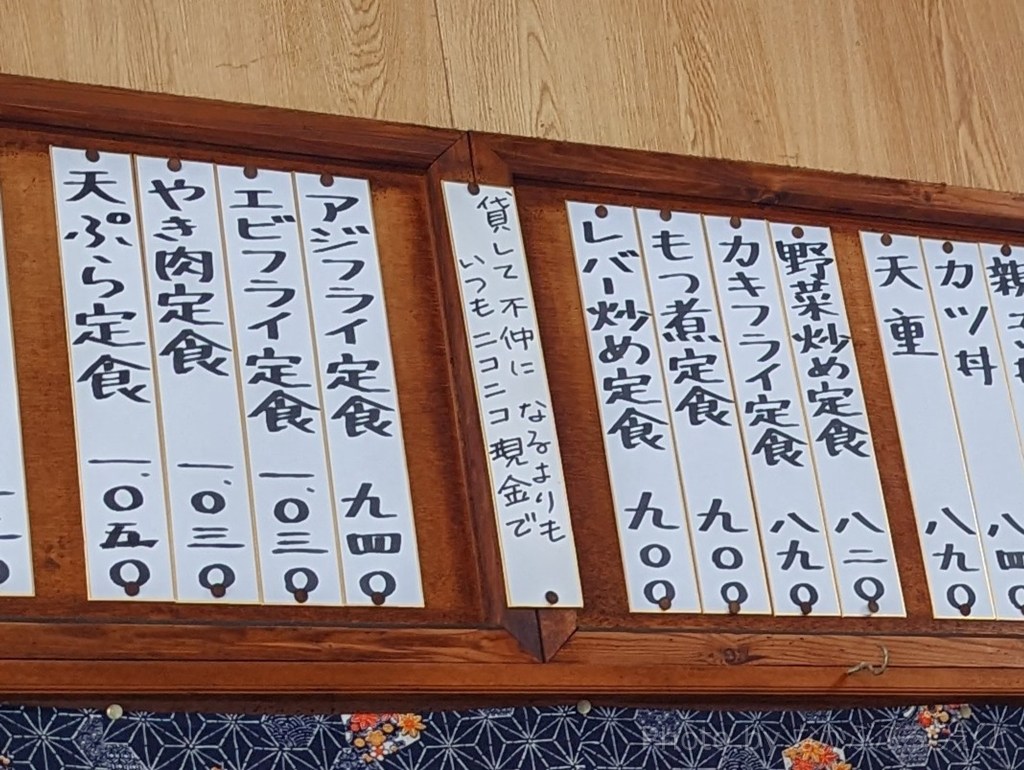 親
カツ丼 八四〇
天重 八九〇
野菜炒め定食 八二〇
カキフライ定食 八九〇
もつ煮定食 九〇〇
レバー炒め定食 九〇〇
貸して不仲になるよりも
いつもニコニコ現金で
アジフライ定食 九四〇
エビフライ定食 一、〇三〇
やき肉定食 一、〇三〇
天ぷら定食 一、〇五〇
Photo by